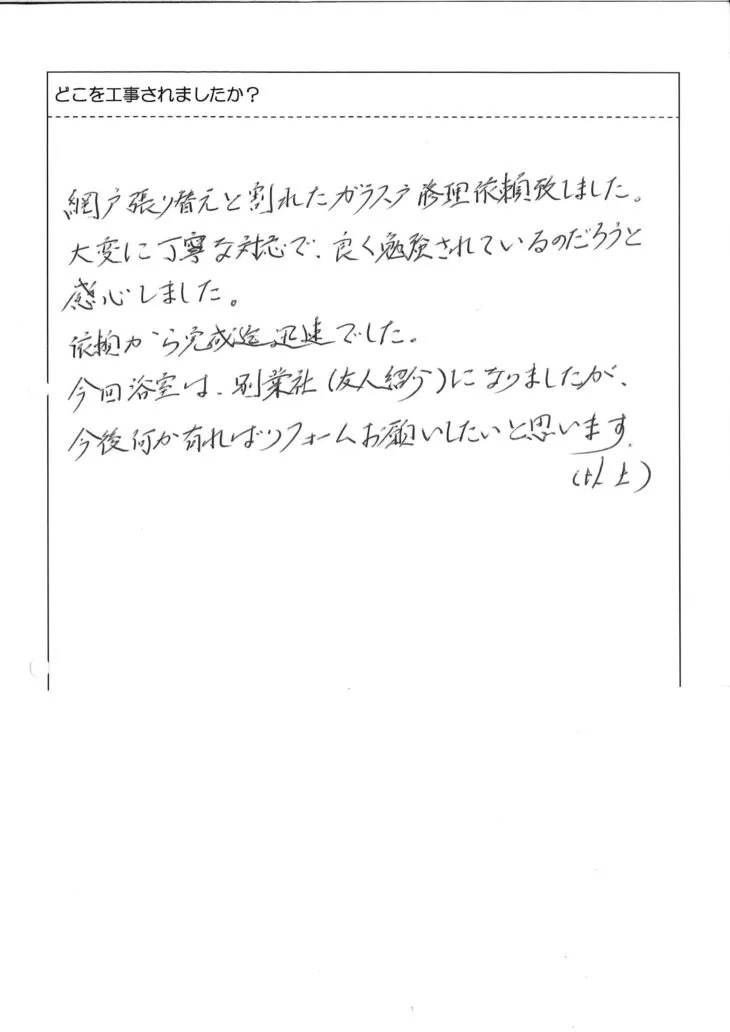 どこを工事されましたか？
網戸張り替えと割れたガラス戸修理依頼致しました。
大変に丁寧な対応で、良く勉強されているのだろうと
感心しました。
依頼から完成迄迅速でした。
今回浴室は、別業社(友人紹介)になりましたが、
今後何か有ればリフォームお願いしたいと思います。
(以上)